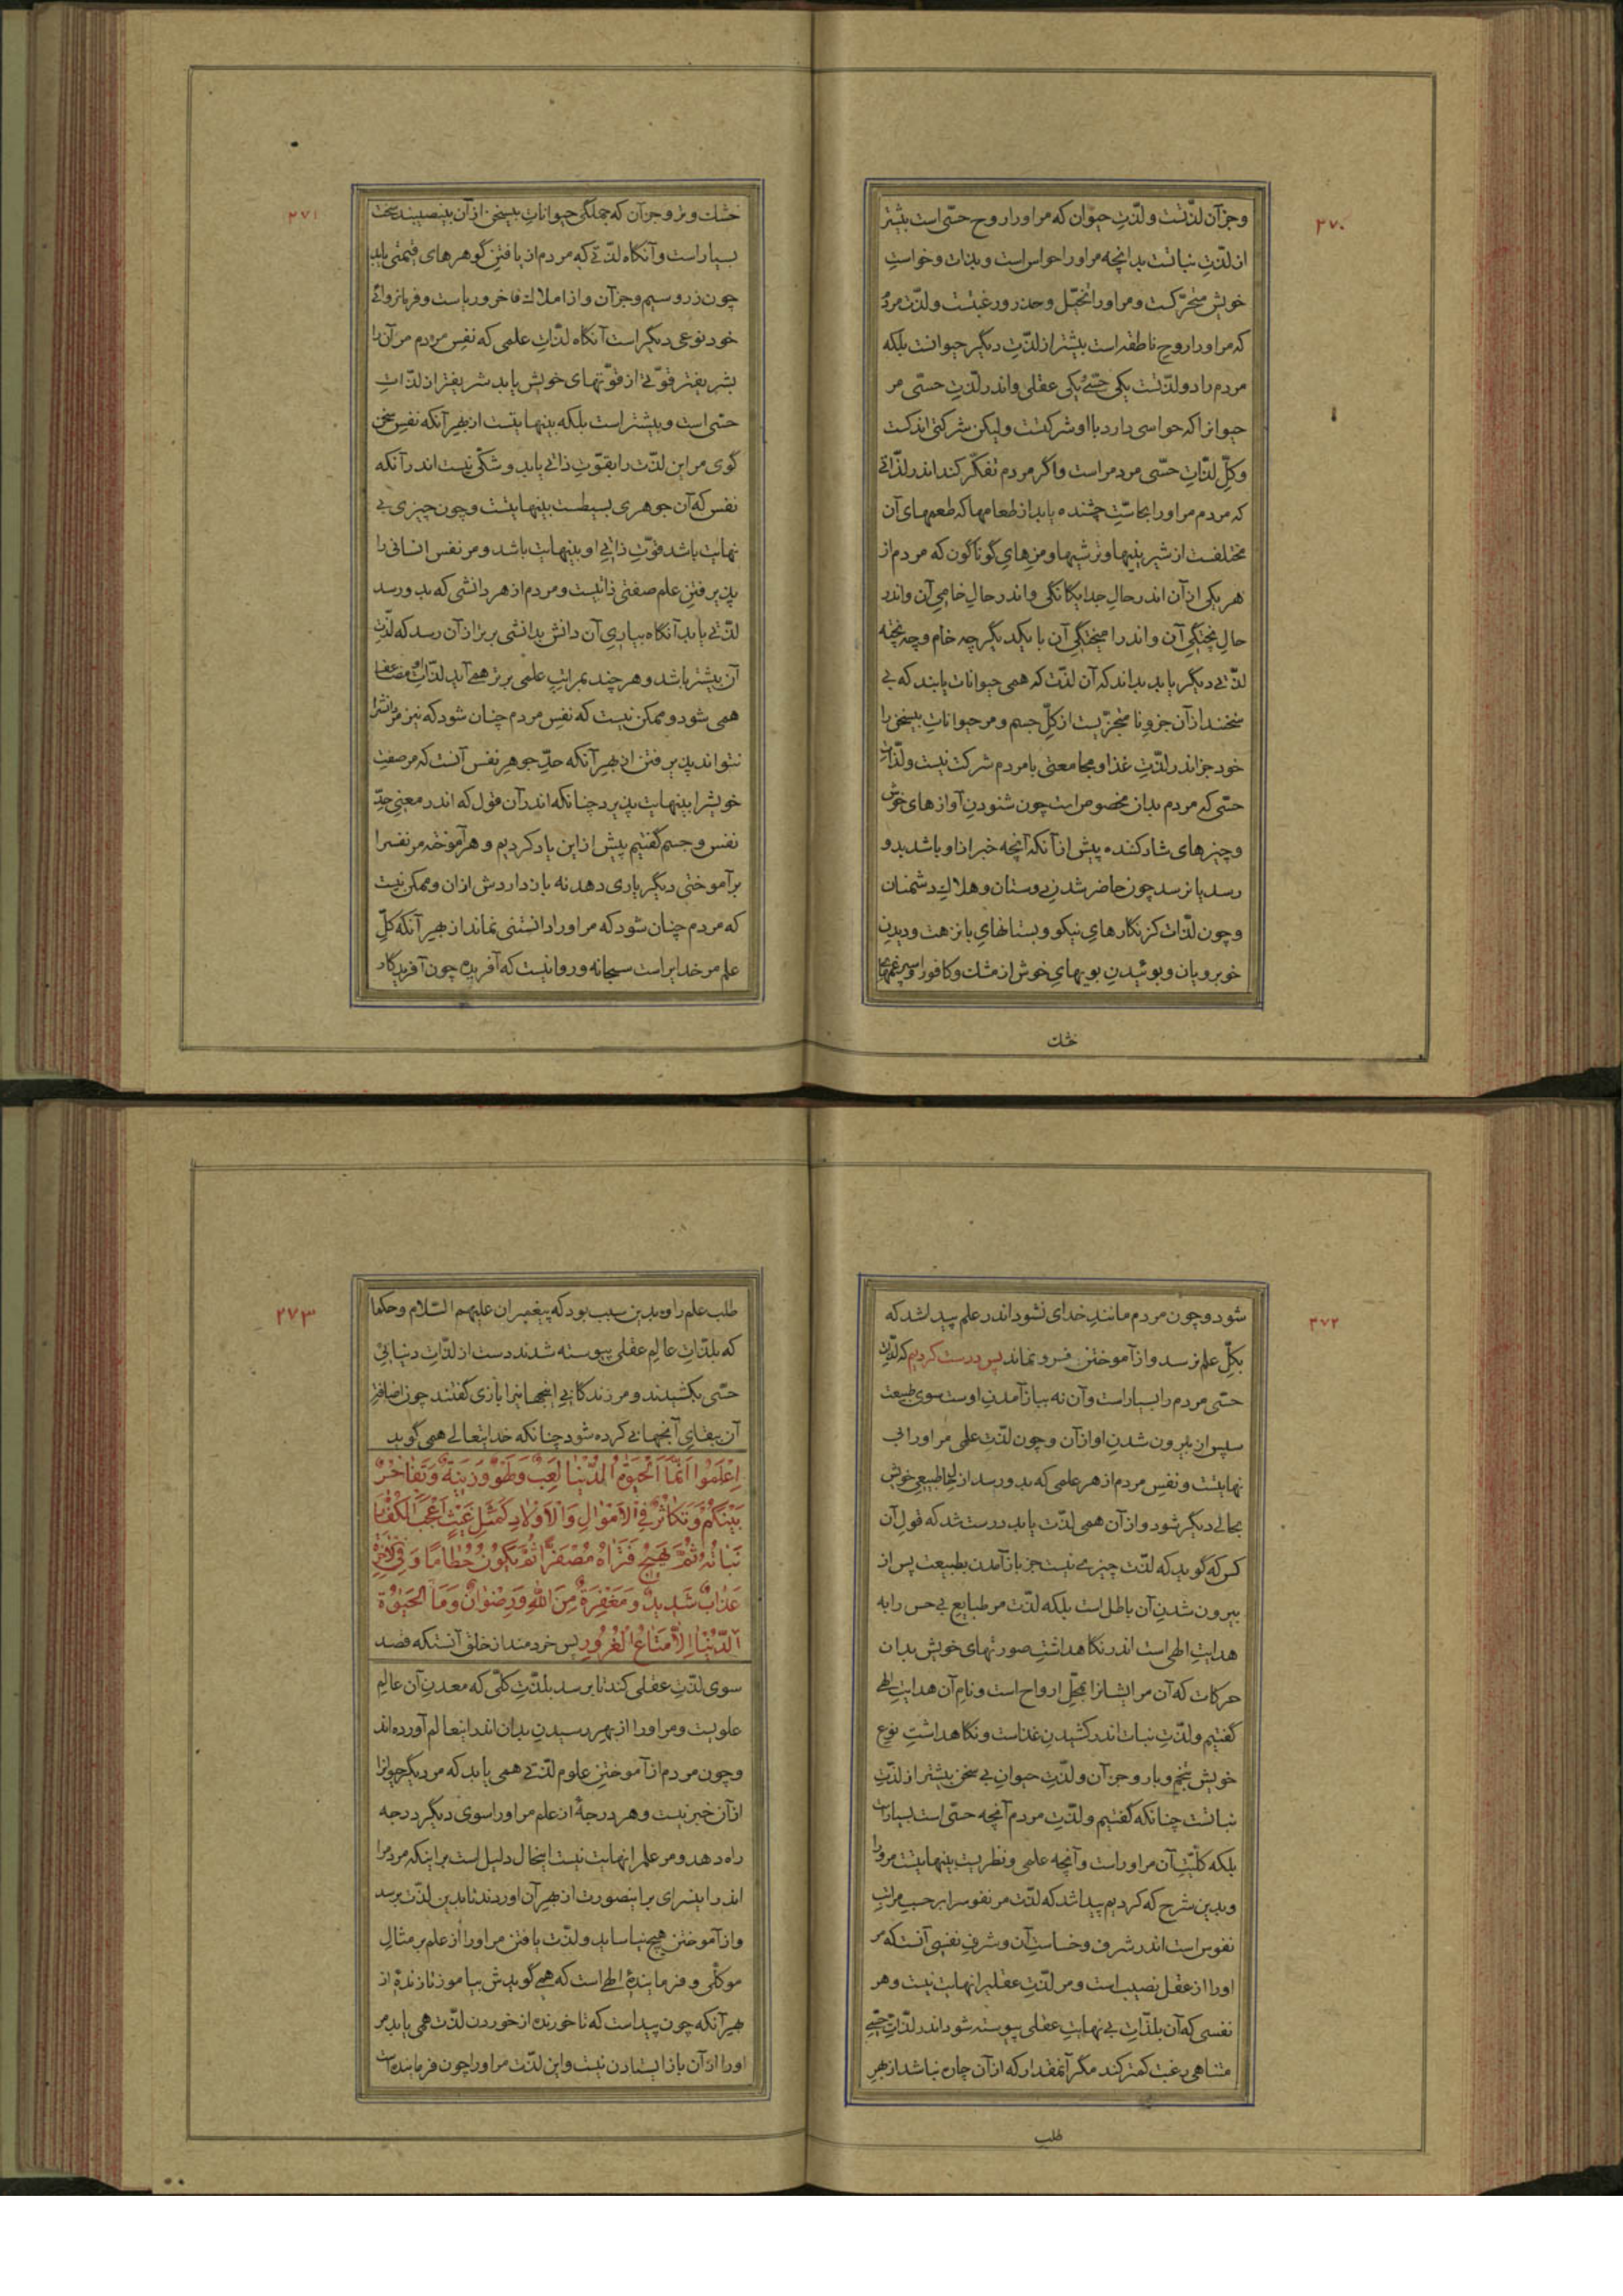 ۲۷۰
وجز آن لذّتست ولذّتِ حیوان که مر اورا روح حسّی است بیشتر
از لذّتِ نباتست بدانچه مر اورا حواس است و بذات و خواستِ
خویش متحرّکست و مر اورا تخیّل وحذر ورغبتست ولذّت مردم
که مر اورا روحِ ناطقه است بیشتر از لذّتِ دیگر حیوانست بلکه
مردم را دو لذّتست یکی حسّی و یکی عقلی واندر لذّتِ حسّی مر
حیوانرا که حواسی دارد با او شرکتست ولیکن شرکتی اندکست
وکلِّ لذّاتِ حسّی مردمراست واگر مردم تفکّر کند اندر لذّاتی
که مردم مر اورا بحاسّتِ چشنده یابد از طعامها که طعمهای آن
مختلفست از شیرینیها و ترشیها ومزهایِ گوناگون که مردم از
هر یکی از آن اندر حالِ جدایگانگی و اندر حالِ خامیِ آن واندر
حالِ پختگیِ آن واندر امیختگیِ آن با یکدیگر چه خام وچه پخته
لذّتی دیگر یابد بداند که آن لذّت که همی حیوانات یابند که بی
سخنند از آن جزوِ نا متجزّیست از کلِّ جسم و مر حیواناتِ بیسخن را
خود جز اندر لذّتِ غذا و مجامعتی با مردم شرکت نیست ولذّات
حسّی که مردم بدان مخصوص است چون شنودنِ آوازهای خوش
وچیزهای شاد کننده پیش از آنکه آنچه خبر از او باشد بدو
رسد یا نرسد چون حاضر شدنِ دوستان وهلاكِ دشمنان
وچون لذّات کز نگارهایِ نیکو و بستانهایِ با نزهت و دیدنِ
خوبرویان وبوئیدنِ بویهایِ خوش از مشك وکافور و اسپرغمها
خشك
۲۷۱
خشك و تر وجز آن که جملگی حیواناتِ بیسخن از آن بینصیبند سخت
بسیار است وآنگاه لذّتی که مردم از یافتنِ گوهرهای قیمتی یابد
چون زر وسیم وجز آن واز املاك فاخر وریاست وفرمانروائی
خود نوعی دیگر است آنگاه لذّاتِ علمی که نفسِ مردم مر آن را
بشریفتر قوّتی از قوّتهای خویش یابد شریفتر از لذّاتِ
حسّی است وبیشتر است بلکه بینهایتست از بهر آنکه نفسِ سخن
گوی مر این لذّت را بقوّتِ ذاتی یابد و شکّی نیست اندر آنکه
نفس که آن جوهری بسیطست بینهایتست وچون چیزی بی
نهایت باشد قوّتِ ذاتیِ او بینهایت باشد ومر نفس انسانی را
پذیرفتنِ علم صفتی ذاتیست ومردم از هر دانشی که بدو رسد
لذّتی یابد آنگاه بیاریِ آن دانش بدانشی برتر از آن رسد که لذّتِ
آن بیشتر باشد وهر چند بمراتبِ علمی برتر همی آید لذّاتِ او مضاعف
همی شود و ممکن نیست که نفسِ مردم چنان شود که نیز مر دانشرا
نتواند پذیرفتن از بهر آنکه حدِّ جوهرِ نفس آنست که مر صفتِ
خویشرا بینهایت پذیرد چنانکه اندر آن قول که اندر معنیِ حدِّ
نفس وجسم گفتیم پیش از این یاد کردیم و هر آموخته مر نفسرا
بر آموختنی دیگر یاری دهد نه باز داردش ازان وممکن نیست
که مردم چنان شود که مر اورا دانستنی نماند از بهر آنکه کلِّ
علم مر خدایراست سبحانه وروا نیست که آفریده چون آفریدگار
۲۷۲
شود وچون مردم مانندِ خدای نشود اندر علم پیدا شد که
بکلِّ علم نرسد واز آموختن فرو نماند پس درست کردیم که لذّاتِ
حسّی مردم را بسیار است وآن نه بباز آمدنِ اوست سوی طبیعت
سپس از بیرون شدنِ او از آن وچون لذّتِ علمی مر اورا بی
نهایتست ونفسِ مردم از هر علمی که بدو رسد از حالِ طبیعیِ خویش
بحالی دیگر شود واز آن همی لذّت یابد درست شد که قولِ آن
کس که گوید که لذّت چیزی نیست جز باز آمدن بطبیعت پس از
بیرون شدنِ آن باطل است بلکه لذّت مر طبایعِ بی حس را به
هدایتِ الهی است اندر نگاهداشتِ صورتهای خویش بدان
حرکات که آن مر ایشانرا بمحلِّ ارواح است ونامِ آن هدایتِ الهی
گفتیم ولذّتِ نبات اندر کشیدنِ غذاست ونگاهداشتِ نوعِ
خویش بتخم وبار وجز آن ولذّتِ حیوانِ بی سخن بیشتر از لذّتِ
نباتست چنانکه گفتیم ولذّتِ مردم آنچه حسّی است بسیار است
بلکه کلّیّتِ آن مر اوراست وآنچه علمی ونظریست بینهایتست مر ورا
وبدین شرح که کردیم پیدا شد که لذّت مر نفوسرا بر حسبِ مراتبِ
نفوس است اندر شرف وخساستِ آن وشرفِ نفسی آنست که مر
اورا از عقل نصیب است ومر لذّتِ عقلیرا نهایت نیست وهر
نفسی که آن بلذّاتِ بی نهایتِ عقلی پیوسته شود اندر لذّاتِ حسّیِ
متناهی رغبت کمتر کند مگر آنمقدار که از آن چاره نباشد از بهرِ
طلب
۲۷۳
طلبِ علم را وبدین سبب بود که پیغمبران علیهم السّلام وحکما
که بلذّاتِ عالمِ عقلی پیوسته شدند دست از لذّاتِ دنیائیِ
حسّی بکشیدند ومر زندگانیِ اینجهانیرا بازی گفتند چون اضافتِ
آن ببقایِ آنجهانی کرده شود چنانکه خدایتعالی همی گوید
اِعْلَمُوا اَنَّمَا الْحَیٰوةُ الدُّنْیٰا لَعِبٌ وَلَهْوٌ وَزینَةٌ وَتَفٰاخُرٌ
بَیْنَکُمْ وَتَکٰاثُرٌ فِی الْاَمْوٰالِ وَالْاَوْلٰادِ کَمَثَلِ غَیْثٍ اَعْجَبَ الْکُفّٰارَ
نَبٰاتُهُ ثُمَّ یَهیجُ فَتَرٰاهُ مُصْفَرًّا ثُمَّ یَکُونُ حُطٰامًا وَفِی الْآخِرَةِ
عَذٰابٌ شَدیدٌ وَمَغْفِرَةٌ مِنَ اللّٰهِ وَرِضْوٰانٌ وَمَا الْحَیٰوةُ
الدُّنْیٰا اِلّٰا مَتٰاعُ الْغُرُورِ پس خردمند از خلق آنستکه قصد
سوی لذّتِ عقلی کند تا برسد بلذّتِ کلّی که معدنِ آن عالمِ
علویست ومر اورا از بهر رسیدنِ بدان اندر اینعالم آورده اند
وچون مردم از آموختنِ علوم لذّتی همی یابد که مر دیگر حیوانرا
از آن خبر نیست وهر درجهٔ از علم مر اورا سوی دیگر درجه
راه دهد ومر علمرا نهایت نیست اینحال دلیل است بر اینکه مردمرا
اندر این سرای بر اینصورت از بهر آن اوردند تا بدین لذّت برسد
واز آموختن هیچ نیاساید ولذّت یافتن مر اورا از علم بر مثالِ
موکّلی وفرمایندهٔ الهی است که همی گویدش بیاموز تا زندهٔ از
بهر آنکه چون پیداست که تا خورنده از خوردن لذّت همی یابد مر
اورا از آن باز ایستادن نیست واین لذّت مر اورا چون فرماینده است